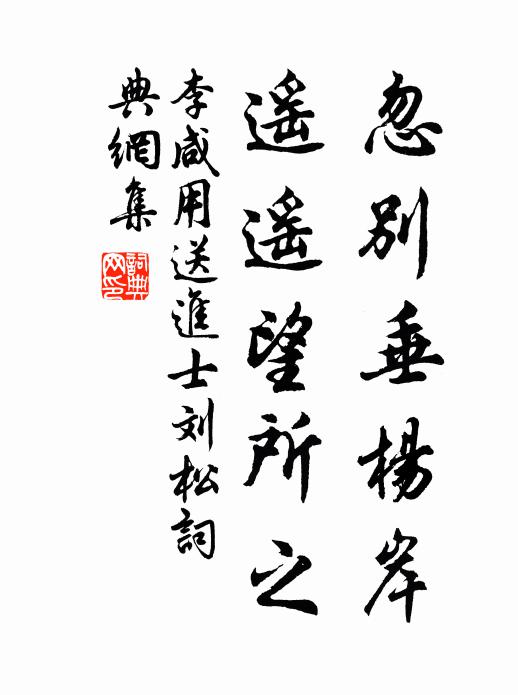 忽别垂楊岸
遥遥望所之
李咸用送進士刘松詞
典網集
詞典网印